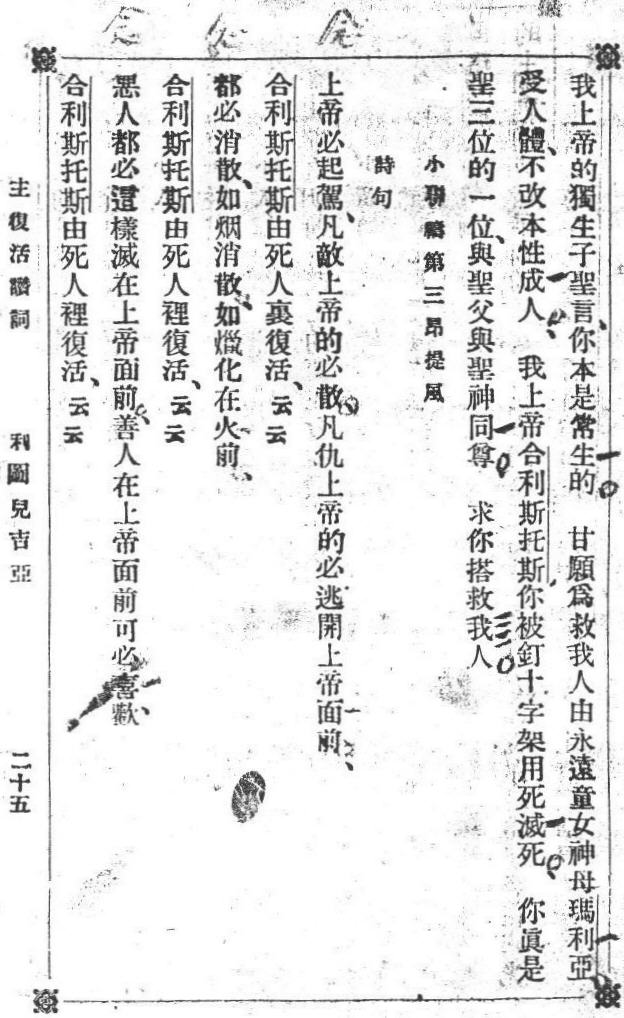 我上帝的獨生子聖言、你本是常生的　甘願爲救我人由永遠童女神母瑪利亞、
受人體、不改本性成人、　我上帝合利斯托斯你被釘十字架用死滅死、　你眞是
聖三位的一位、與聖父與聖神同尊　求你搭救我人
小聯禱第三昻提風
詩句
上帝必起駕、凡敵上帝的必散、凡仇上帝的必逃開上帝面前、
合利斯托斯由死人裏復活、云云
都必消散、如烟消散、如爉化在火前、
合利斯托斯由死人裡復活、云云
惡人都必這樣滅在上帝面前、善人在上帝面前可必喜歡、
合利斯托斯由死人裡復活、云云
主復活讚詞　利圖兒吉亞　二十五